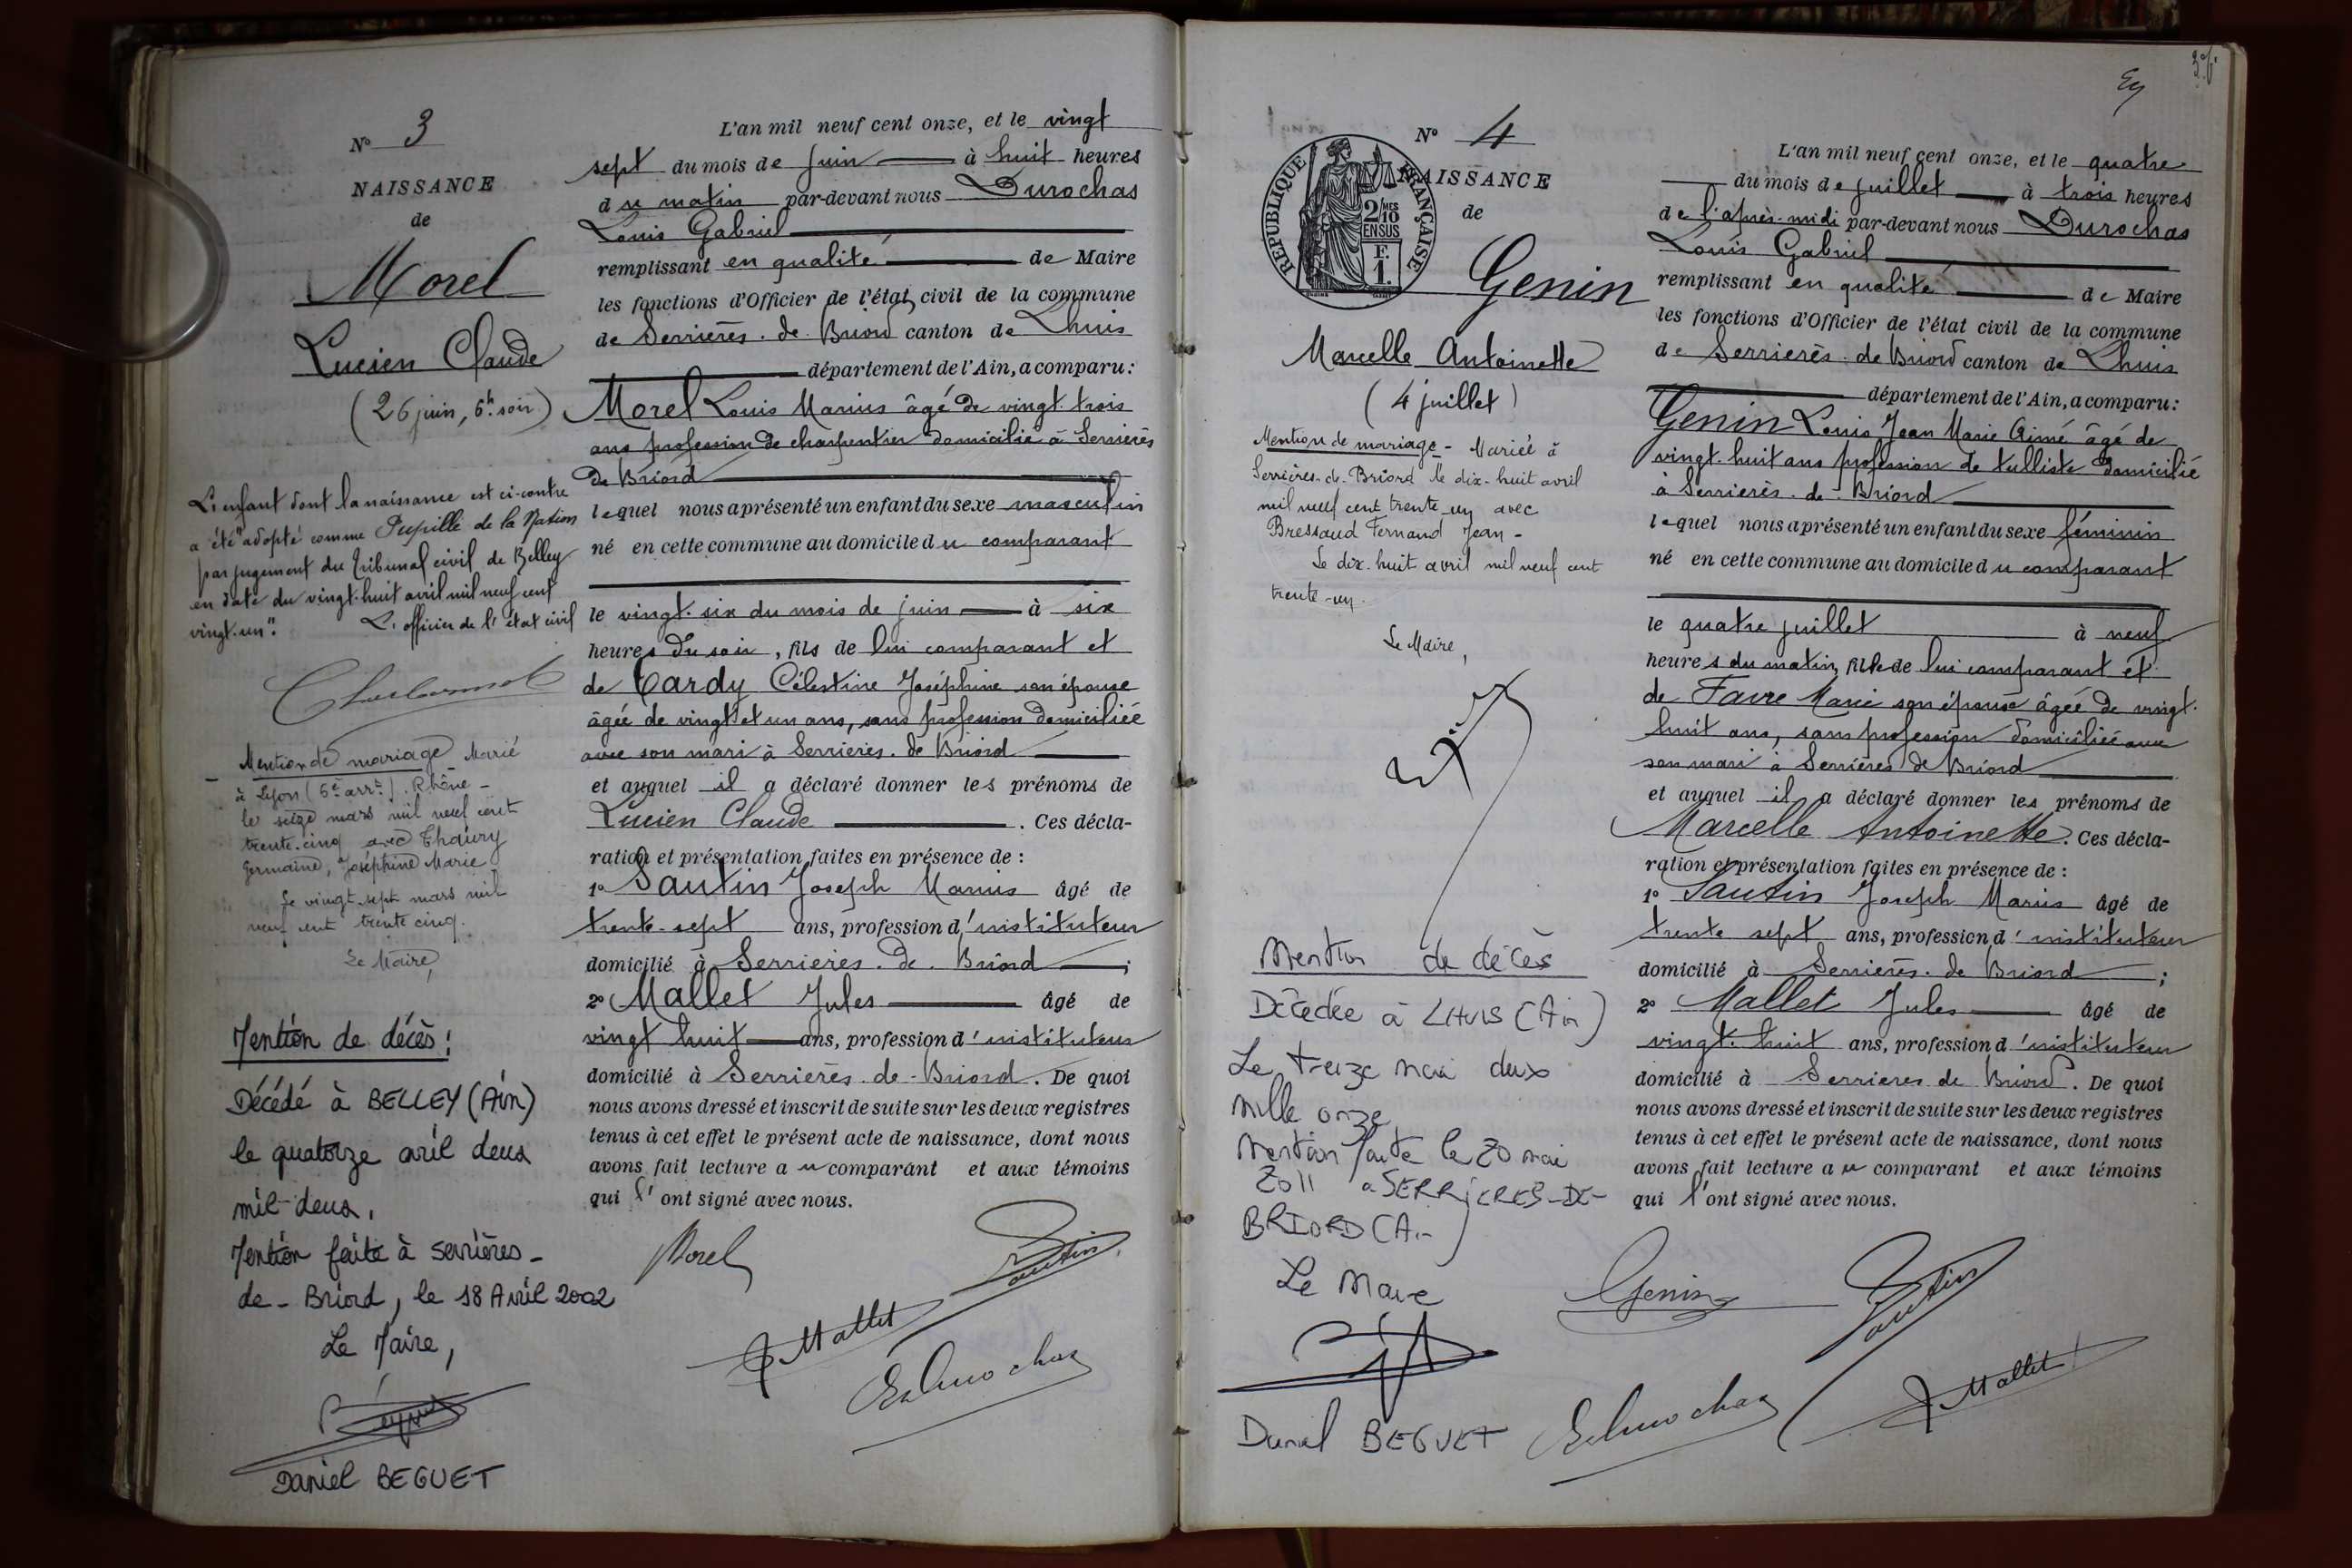 N° 3
NAISSANCE
de
Morel
Lucien Claude
(26 juin, 6h soir)
L'enfant dont la naissance est ci-contre
a été "adopté comme Pupille de la Nation
par jugement du Tribunal civil de Belley
en date du vingt-huit avril mil neuf cent
vingt-un".
L'officier de l'état civil
Mention de mariage Marié
à Lyon (6e arrt) Rhône -
le seize mars mil neuf cent
trente-cinq avec Thaury
Germaine, Joséphine Marie
Le vingt-sept mars mil
neuf cent trente cinq.
Le Maire,
Mention de décès:
Décédé à BELLEY (Ain)
le quatorze avril deux
mil-deux.
Mention faite à Serrières-
de-Briord, le 18 Avril 2002
Le Maire,
Daniel BEGUET
L'an mil neuf cent onze, et le vingt
sept du mois de juin à huit heures
du matin par-devant nous Durochas
Louis Gabriel
remplissant en qualité de Maire
les fonctions d'Officier de l'état civil de la commune
de Serrières-de-Briord canton de Lhuis
département de l'Ain, a comparu:
Morel Louis Marius âgé de vingt-trois
ans profession de charpentier domicilié à Serrières
de Briord
lequel nous a présenté un enfant du sexe masculin
né en cette commune au domicile du comparant
le vingt-six du mois de juin à six
heures du soir, fils de lui comparant et
de Cardy Célestine Joséphine son épouse
âgée de vingt et un ans, sans profession domiciliée
avec son mari à Serrières-de-Briord
et auquel il a déclaré donner les prénoms de
Lucien Claude. Ces décla-
ration et présentation faites en présence de:
1° Sautin Joseph Marius âgé de
trente-sept ans, profession d'instituteur
domicilié à Serrières-de-Briord;
2° Mallet Jules âgé de
vingt huit ans, profession d'instituteur
domicilié à Serrières-de-Briord. De quoi
nous avons dressé et inscrit de suite sur les deux registres
tenus à cet effet le présent acte de naissance, dont nous
avons fait lecture au comparant et aux témoins
qui l'ont signé avec nous.
Morel
Sautin
J Mallet
Durochas
N° 4
NAISSANCE
de
RÉPUBLIQUE FRANÇAISE
2/10 MES
EN SUS
F.
1.
Genin
Marcelle Antoinette
(4 juillet)
Mention de mariage - Mariée à
Serrières-de-Briord le dix-huit avril
mil neuf cent trente-un avec
Bressaud Fernand Jean -
Le dix-huit avril mil neuf cent
trente-un.
Le Maire,
Mention de décès
Décédée à LHUIS (Ain)
Le treize mai deux
mille onze
Mention faite le 20 mai
2011 a SERRIERES-DE-
BRIORD (Ain)
Le Maire
Daniel BEGUET
L'an mil neuf cent onze, et le quatre
du mois de juillet à trois heures
de l'après-midi par-devant nous Durochas
Louis Gabriel
remplissant en qualité de Maire
les fonctions d'Officier de l'état civil de la commune
de Serrières-de-Briord canton de Lhuis
département de l'Ain, a comparu:
Genin Louis Jean Marie Aimé âgé de
vingt-huit ans profession de tulliste domicilié
à Serrières-de-Briord
lequel nous a présenté un enfant du sexe féminin
né en cette commune au domicile du comparant
le quatre juillet à neuf
heures du matin, fille de lui comparant et
de Favre Marie son épouse âgée de vingt-
huit ans, sans profession domiciliée avec
son mari à Serrières de Briord
et auquel il a déclaré donner les prénoms de
Marcelle Antoinette. Ces décla-
ration et présentation faites en présence de:
1° Sautin Joseph Marius âgé de
trente sept ans, profession d'instituteur
domicilié à Serrières-de-Briord;
2° Mallet Jules âgé de
vingt-huit ans, profession d'instituteur
domicilié à Serrières de Briord. De quoi
nous avons dressé et inscrit de suite sur les deux registres
tenus à cet effet le présent acte de naissance, dont nous
avons fait lecture au comparant et aux témoins
qui l'ont signé avec nous.
Genin
Sautin
Durochas
J Mallet